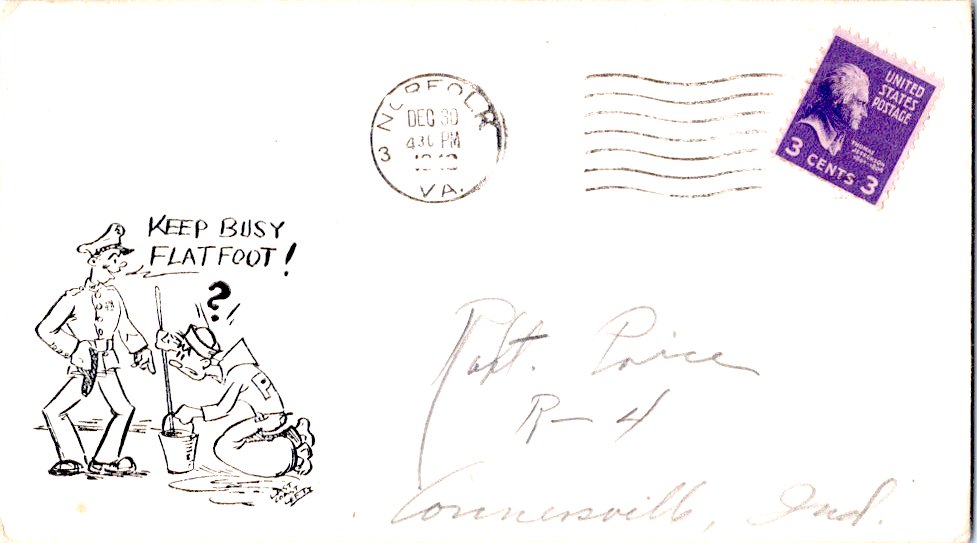 NORFOLK
DEC 30
430 PM
3
VA.
UNITED
STATES
POSTAGE
THOMAS
JEFFERSON
3 CENTS 3
KEEP BUSY
FLATFOOT!
?
Robt. Price
R-4
Connersville, Ind.